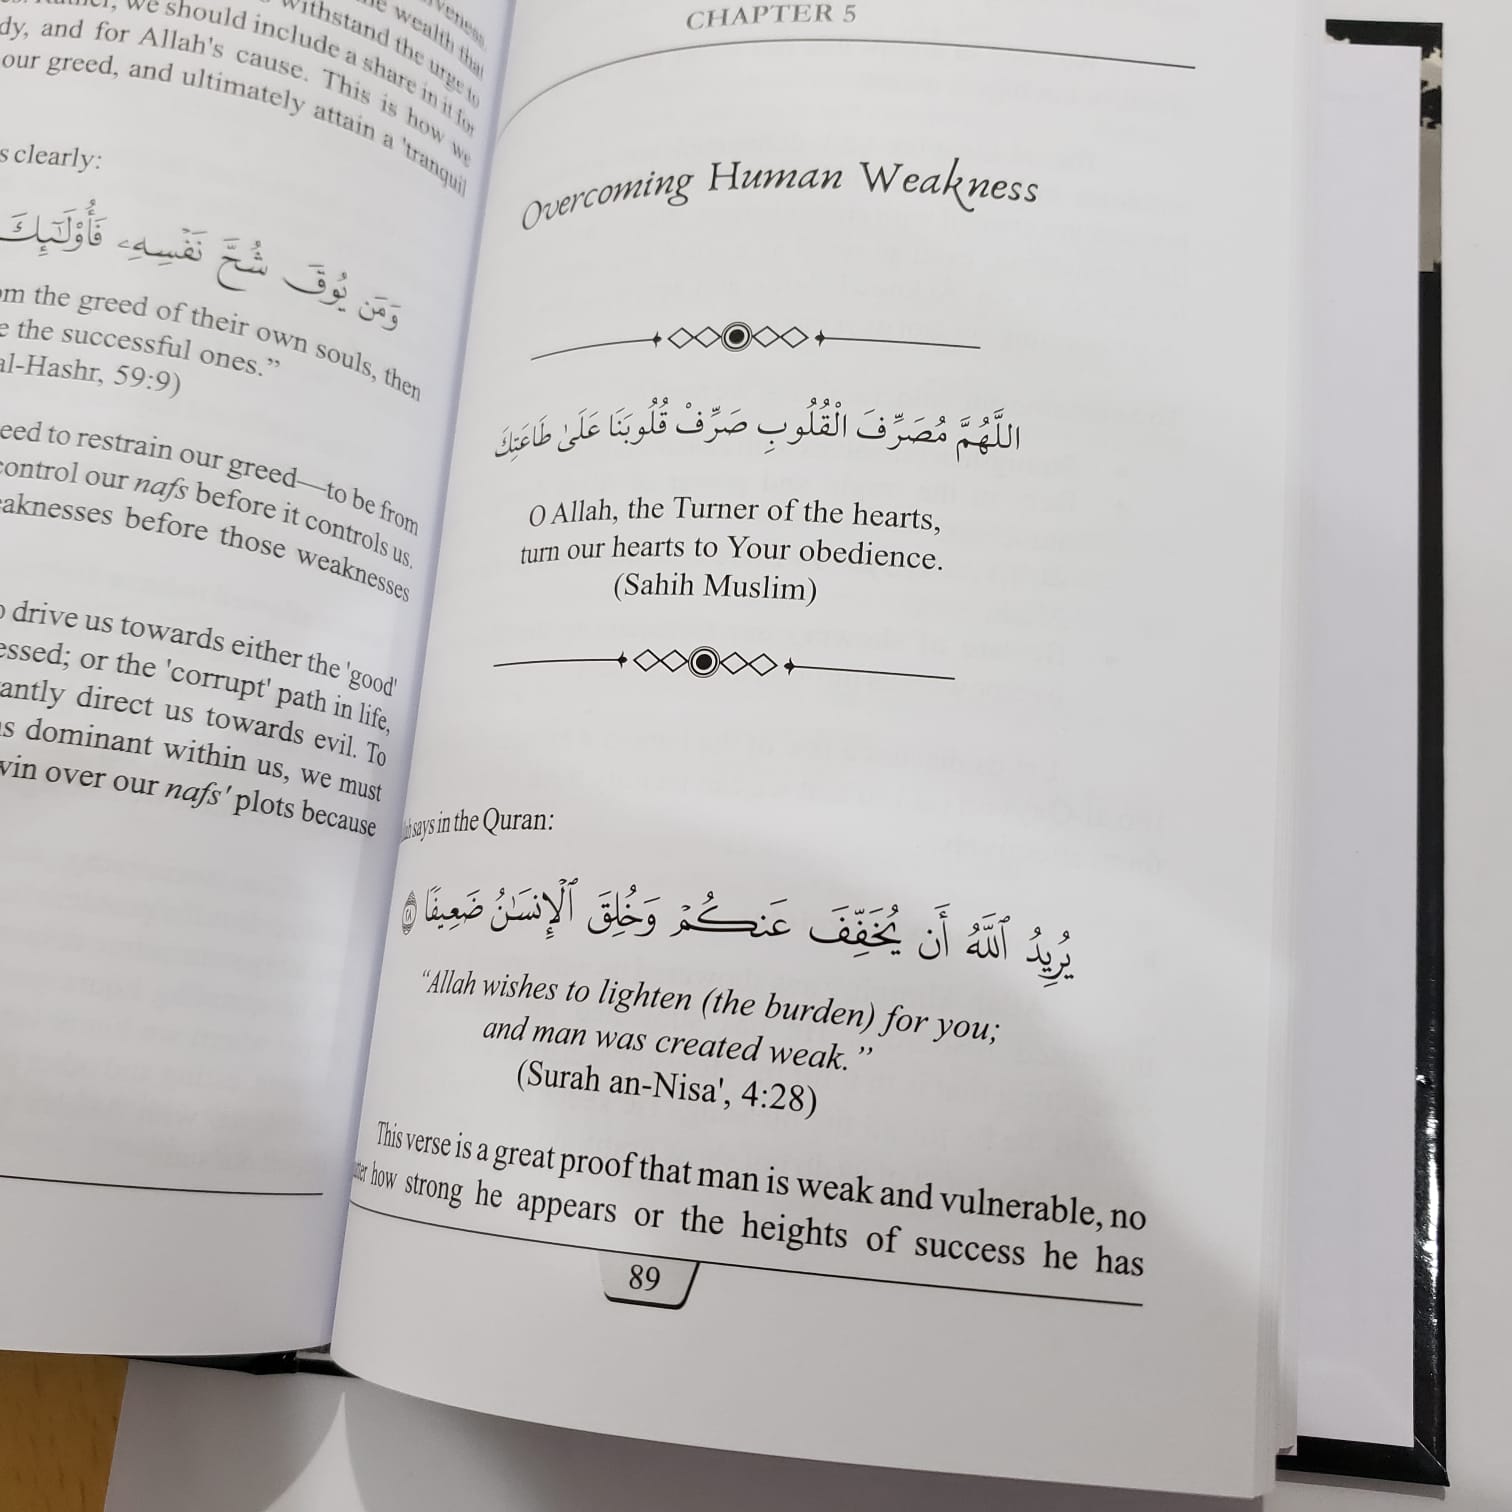 we should include a share in it for
and for Allah's cause. This is how we
our greed, and ultimately attain a 'tranquil
clearly:
وَمَن يُوقَ شُحَّ نَفْسِهِۦ فَأُو۟لَـٰٓئِكَ
the greed of their own souls, then
the successful ones.”
al-Hashr, 59:9)
to restrain our greed—to be from
control our nafs before it controls us.
before those weaknesses
drive us towards either the 'good'
or the 'corrupt' path in life,
direct us towards evil. To
dominant within us, we must
win over our nafs' plots because
CHAPTER 5
Overcoming Human Weakness
اللَّهُمَّ مُصَرِّفَ الْقُلُوبِ صَرِّفْ قُلُوبَنَا عَلَىٰ طَاعَتِكَ
O Allah, the Turner of the hearts,
turn our hearts to Your obedience.
(Sahih Muslim)
says in the Quran:
يُرِيدُ ٱللَّهُ أَن يُخَفِّفَ عَنكُمْ وَخُلِقَ ٱلْإِنسَـٰنُ ضَعِيفًا ٢٨
“Allah wishes to lighten (the burden) for you;
and man was created weak.”
(Surah an-Nisa', 4:28)
This verse is a great proof that man is weak and vulnerable, no
how strong he appears or the heights of success he has
89